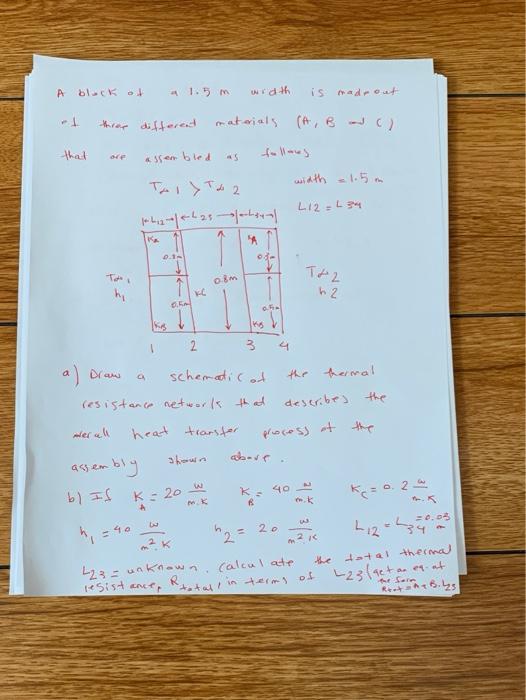 A block of a 1.5 m width is made out
of three different materials (A, B and C)
that are assembled as follows
T∞1 > T∞2
width = 1.5 m
L12 = L34
|←L12→|←L23→|←L34→|
KA
0.3m
0.5m
KB
KC
0.8m
KA
0.3m
0.5m
KB
T∞1
h1
T∞2
h2
1 2 3 4
a) Draw a schematic of the thermal
resistance network that describes the
overall heat transfer process of the
assembly shown above.
b) If KA = 20 W/m.K KB = 40 W/m.K KC = 0.2 W/m.K
h1 = 40 W/m².K h2 = 20 W/m².K L12 = L34 = 0.03 m
L23 = unknown. calculate the total thermal
resistance, Rtotal, in terms of L23 (get an eq. of
the form
Rtot = A + B.L23